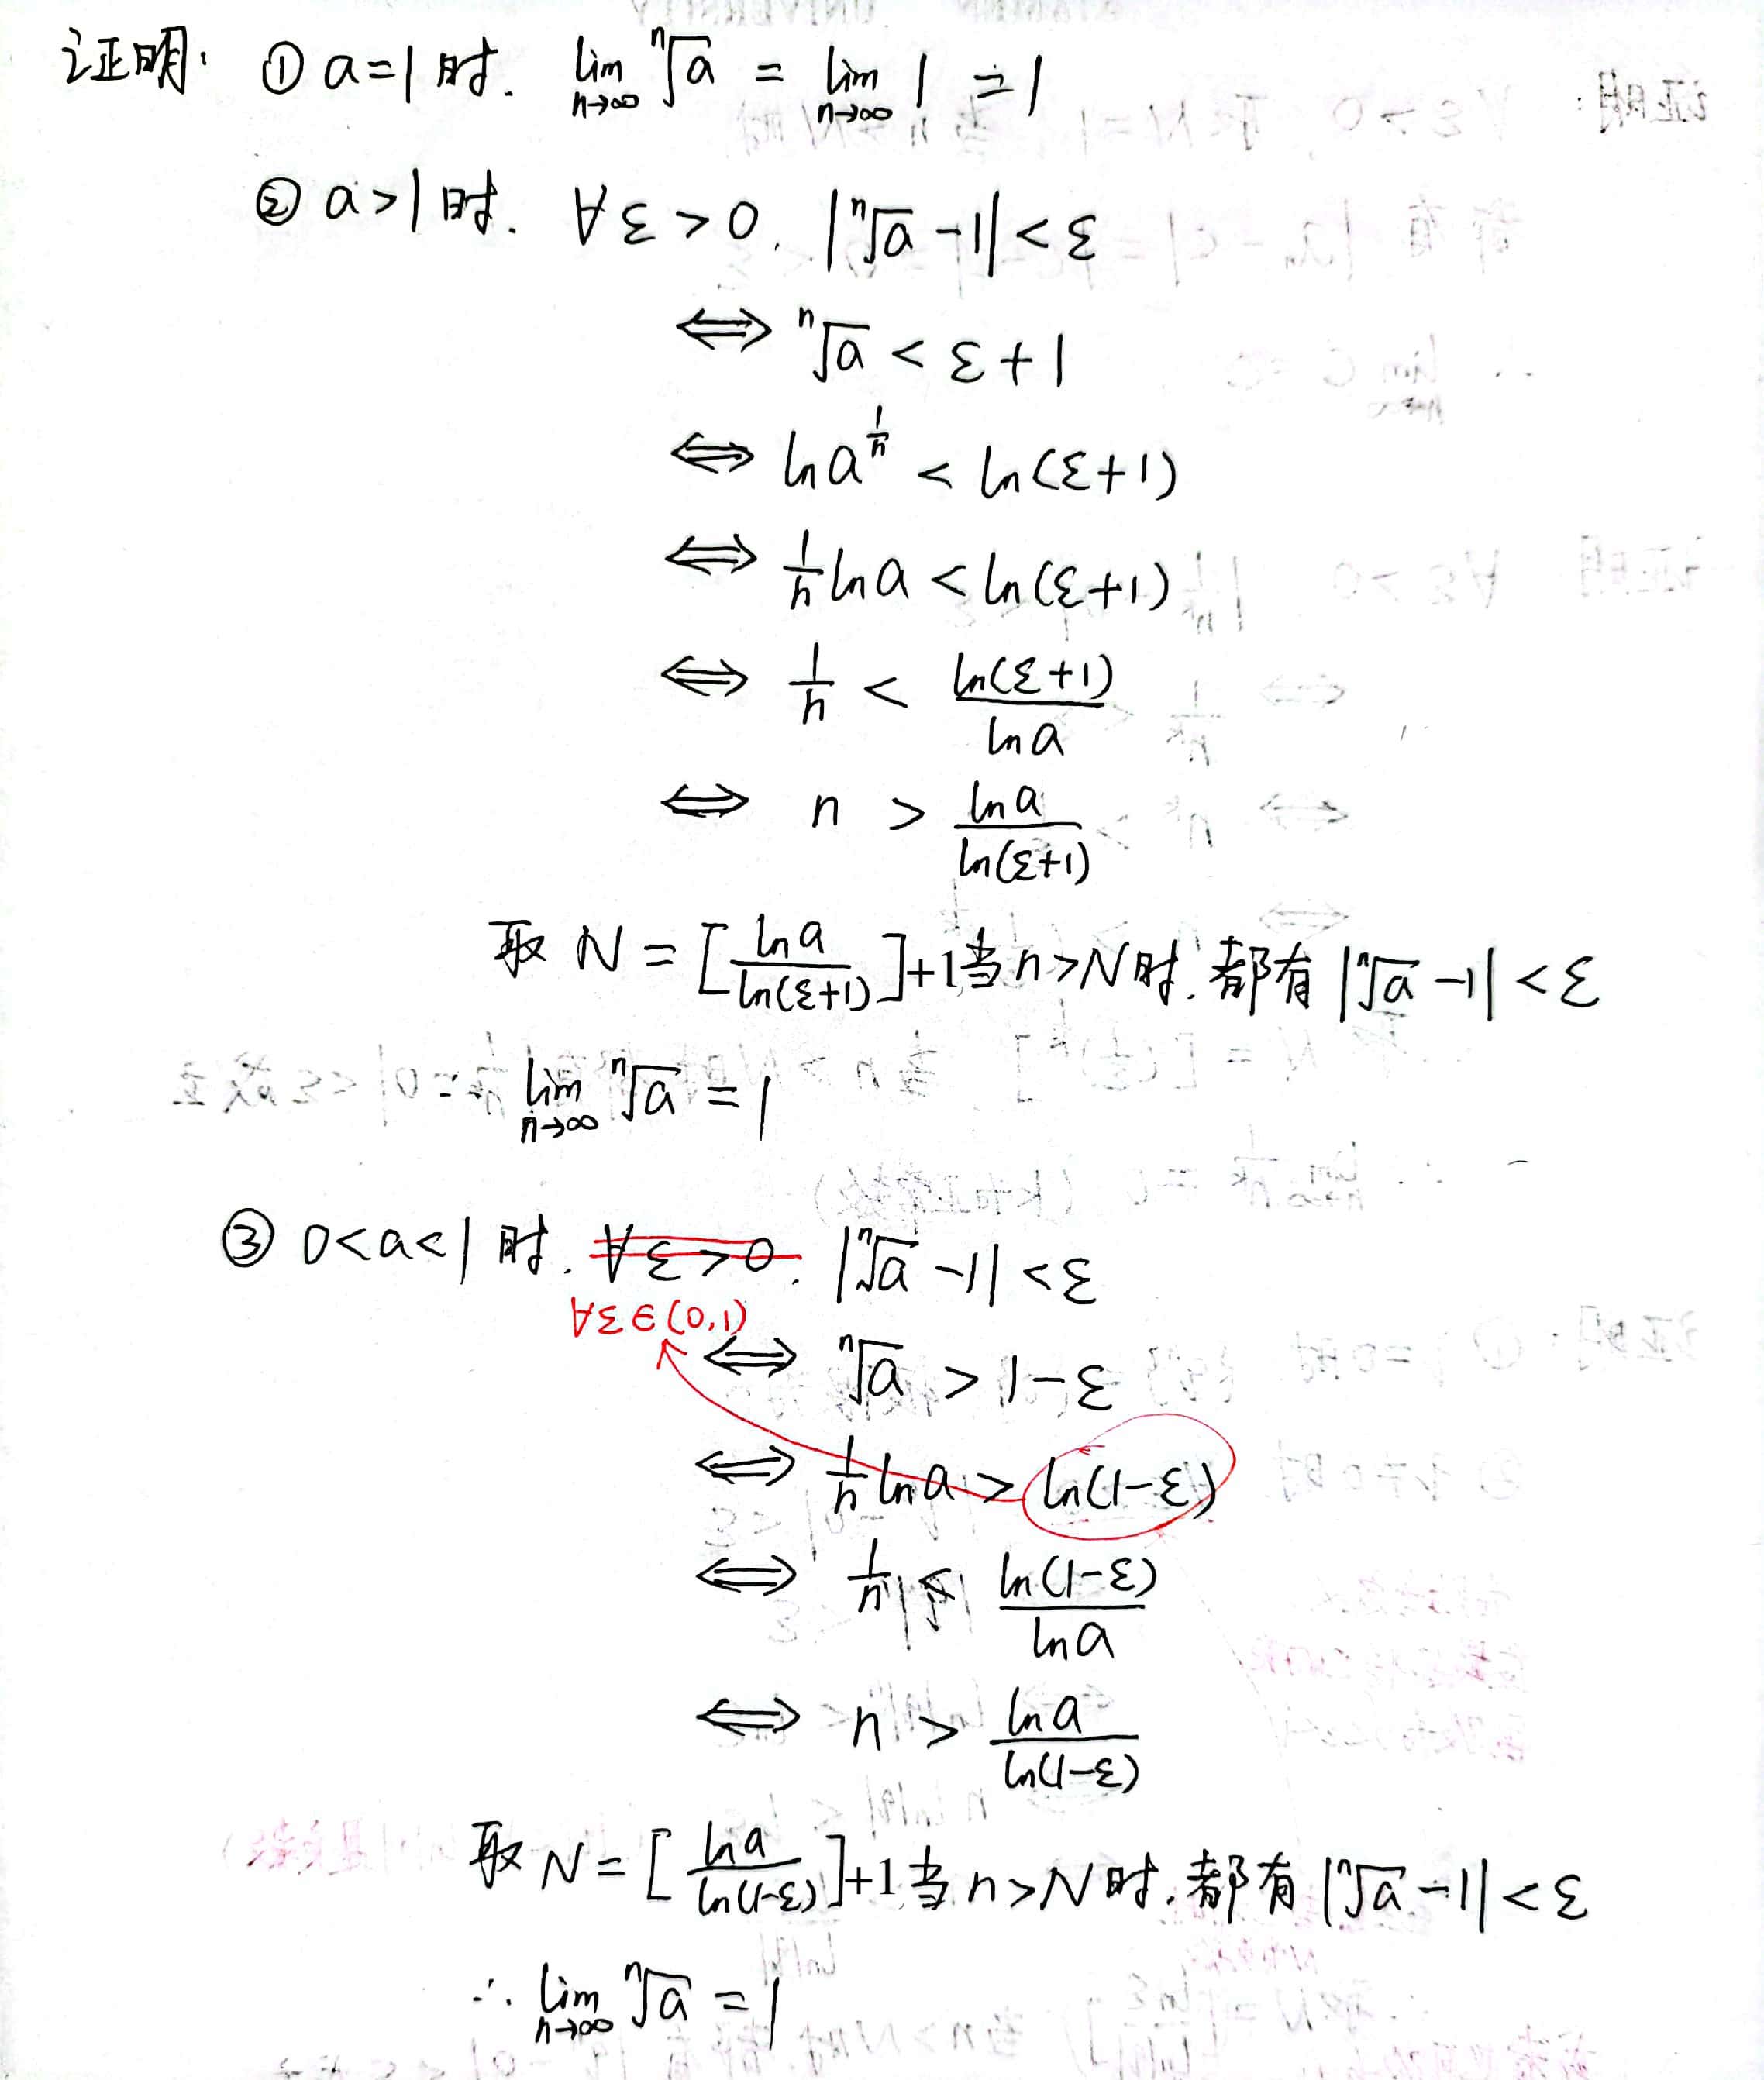 证明: ① a=1时. lim n→∞ ⁿ√a = lim n→∞ 1 = 1
② a>1时. ∀ε>0. |ⁿ√a -1|<ε
⟺ ⁿ√a < ε+1
⟺ ln a^(1/n) < ln(ε+1)
⟺ 1/n ln a < ln(ε+1)
⟺ 1/n < ln(ε+1)/ln a
⟺ n > ln a/ln(ε+1)
取 N = [ln a/ln(ε+1)]+1 当n>N时. 都有 |ⁿ√a -1|<ε
lim n→∞ ⁿ√a = 1
③ 0<a<1时. ∀ε>0. |ⁿ√a -1|<ε
∀ε∈(0,1)
⟺ ⁿ√a > 1-ε
⟺ 1/n ln a > ln(1-ε)
⟺ 1/n < ln(1-ε)/ln a
⟺ n > ln a/ln(1-ε)
取 N = [ln a/ln(1-ε)]+1 当n>N时. 都有 |ⁿ√a -1|<ε
∴ lim n→∞ ⁿ√a = 1